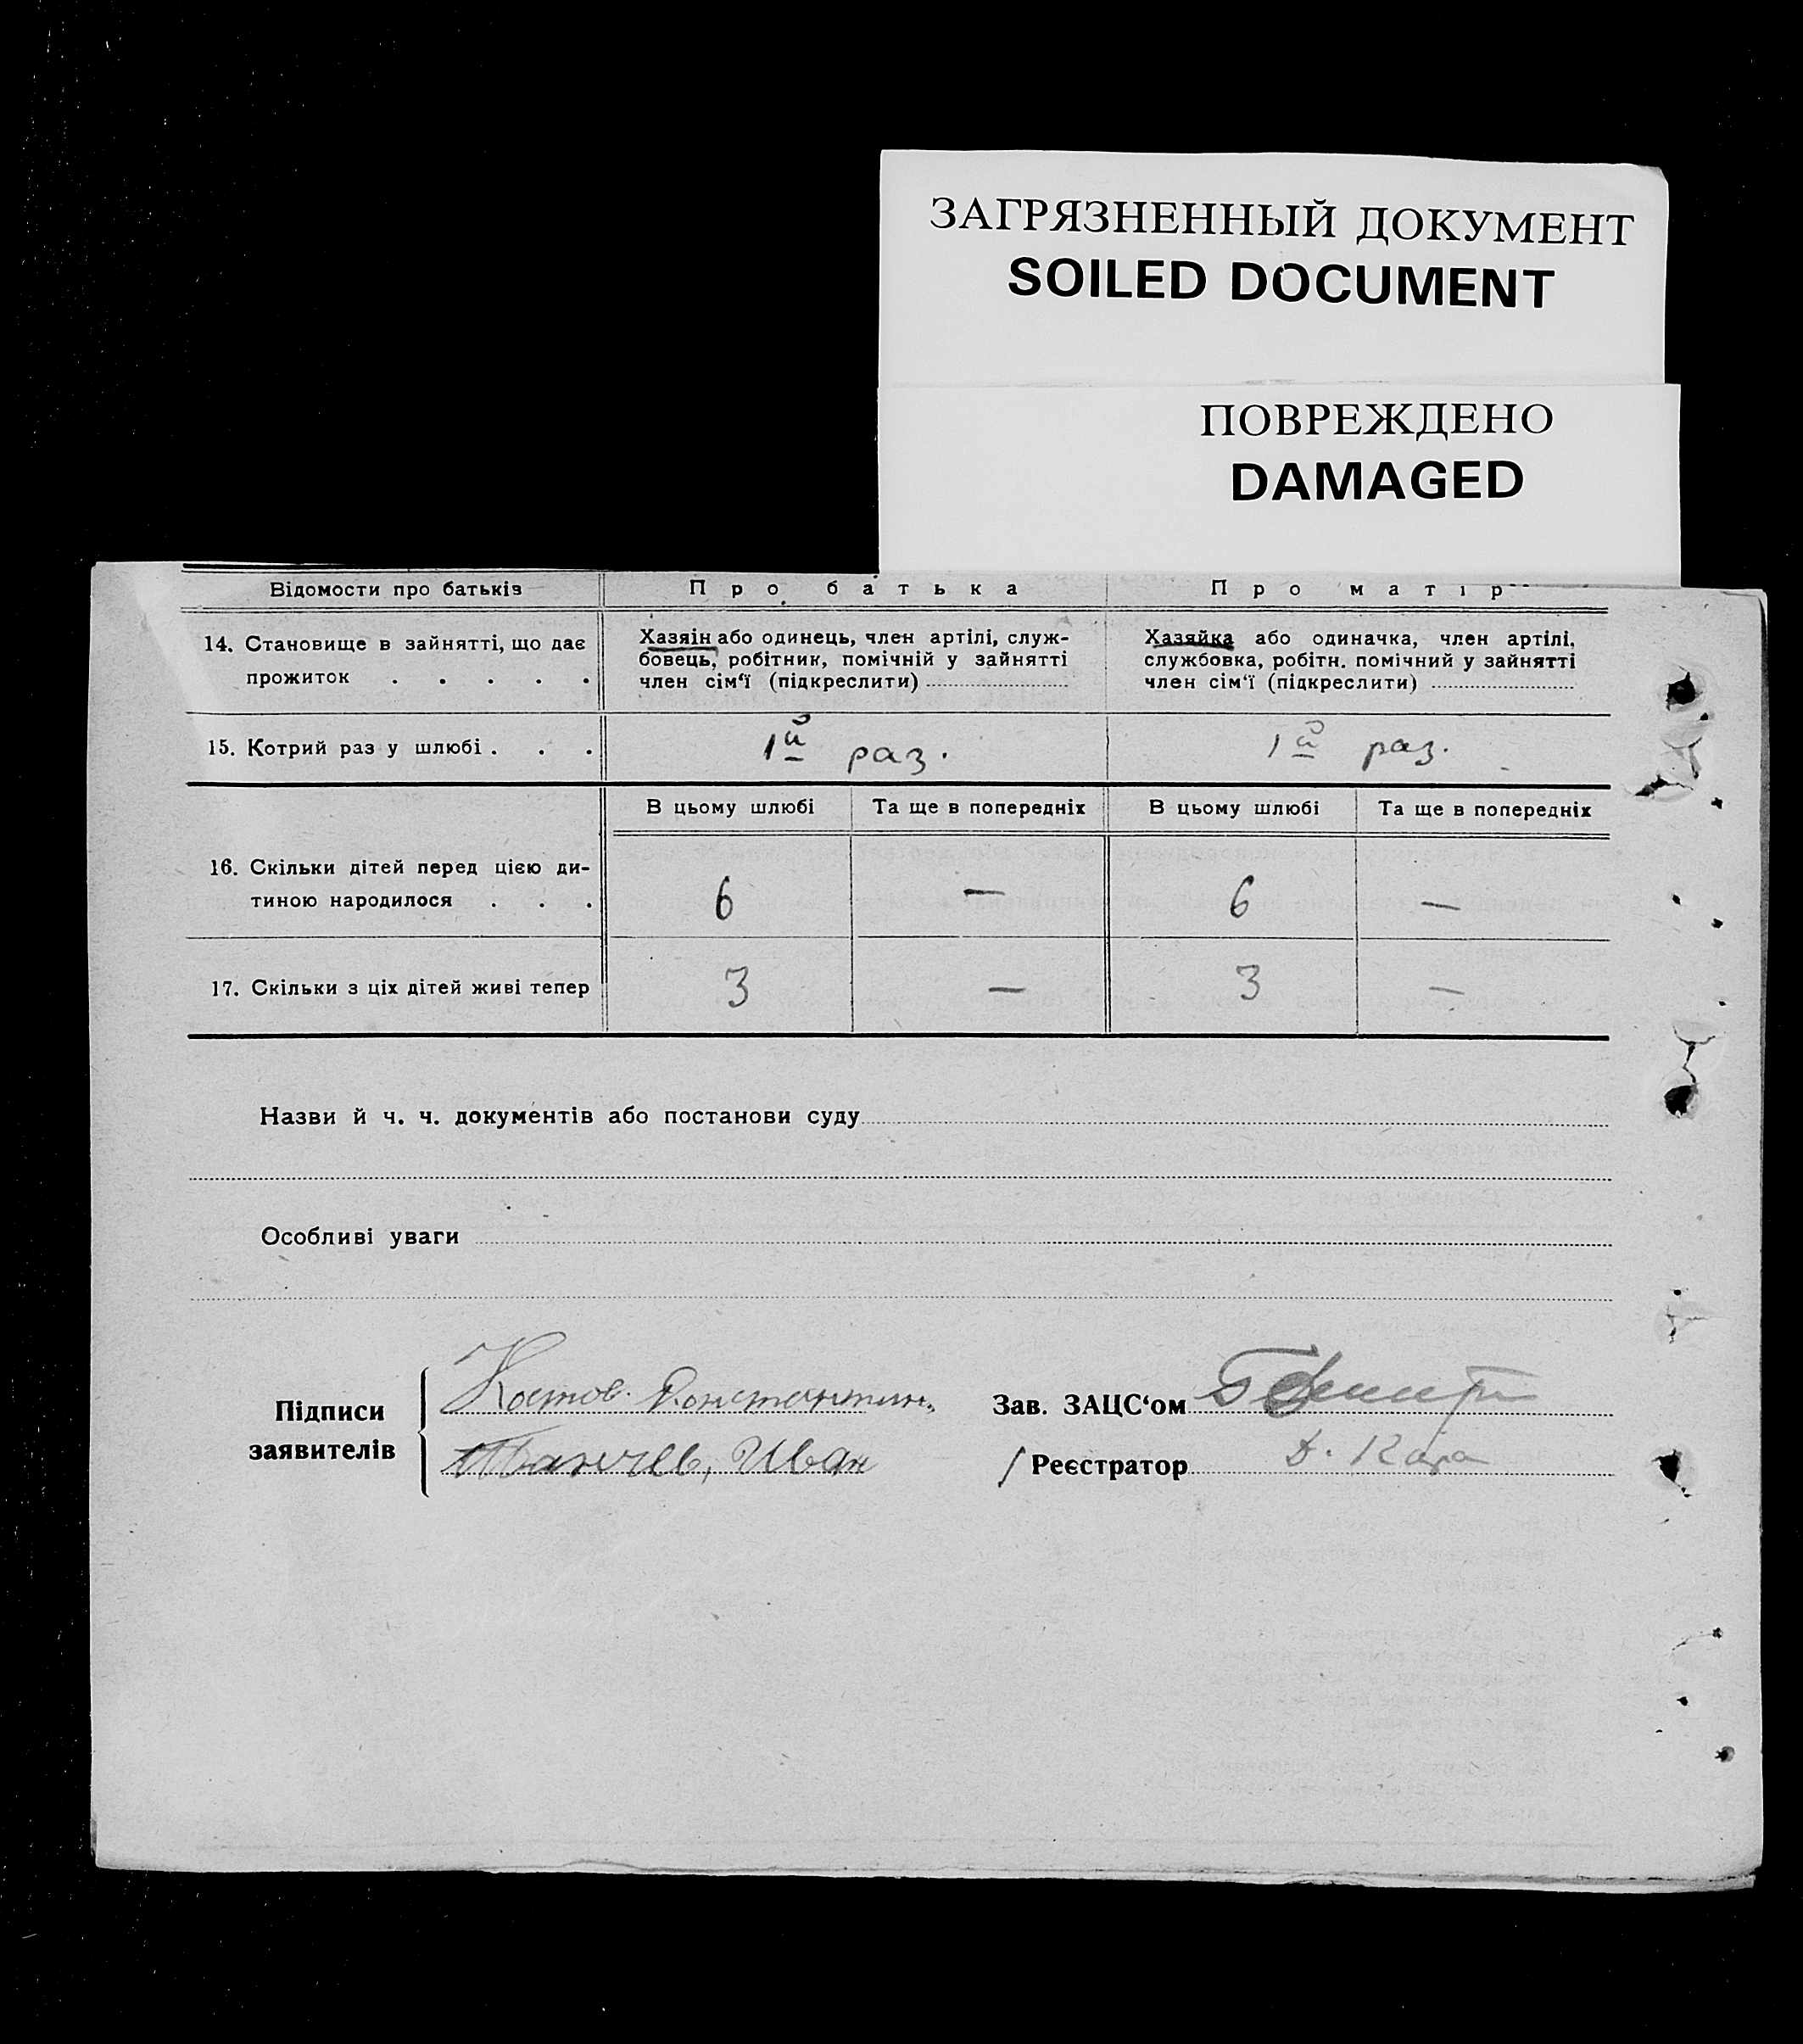 ЗАГРЯЗНЕННЫЙ ДОКУМЕНТ
SOILED DOCUMENT
ПОВРЕЖДЕНО
DAMAGED
Відомости про батьків Про батька Про матір
14. Становище в зайнятті, що дає
прожиток . . . . .
Хазяін або одинець, член артілі, служ-
бовець, робітник, помічній у зайнятті
член сім‘ї (підкреслити)
Хазяйка або одиначка, член артілі,
службовка, робітн. помічний у зайнятті
член сім‘ї (підкреслити)
15. Котрий раз у шлюбі . . . 1й раз. 1й раз.
В цьому шлюбі Та ще в попередніх В цьому шлюбі Та ще в попередніх
16. Скільки дітей перед цією ди-
тиною народилося . . . 6 — 6 —
17. Скільки з ціх дітей живі тепер 3 — 3 —
Назви й ч. ч. документів або постанови суду
Особливі уваги
Підписи
заявителів
Костов. Константин.
Иван
Зав. ЗАЦС‘ом
/ Реєстратор Д. Кара